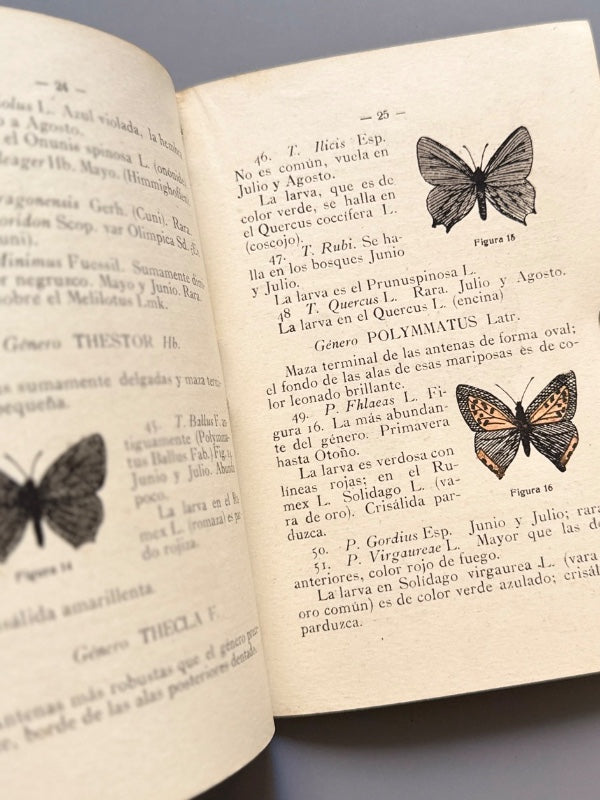 — 24 —
L. Azul violada, la
a Agosto.
el Ononis spinosa L.
Hb. Mayo. (Himmighoffen)
Gerh. (Cuni). Rara.
Scop. var Olimpica Sd.
Fuessil. Sumamente
negrusco. Mayo y Junio. Rara.
sobre el Melilotus Lmk.
Género THESTOR Hb.
sumamente delgadas y maza
pequeña.
45. T. Ballus F.
tiguamente (Polymma-
tus Ballus Fab.) Fig.
Junio y Julio.
poco.
La larva en el
mex L. (romaza) es
do rojiza.
Figura 14
amarillenta.
Género THECLA F.
antenas más robustas que el género
borde de las alas posteriores dentado.
— 25 —
46. T. Ilicis Esp.
No es común, vuela en
Julio y Agosto.
La larva, que es de
color verde, se halla en
el Quercus coccífera L.
(coscojo).
47. T. Rubi. Se ha-
lla en los bosques Junio
y Julio.
Figura 15
La larva es el Prunuspinosa L.
48 T. Quercus L. Rara. Julio y Agosto.
La larva en el Quercus L. (encina)
Género POLYMMATUS Latr.
Maza terminal de las antenas de forma oval;
el fondo de las alas de esas mariposas ès de co-
lor leonado brillante.
49. P. Fhlaeas L. Fi-
gura 16. La más abundan-
te del género. Primavera
hasta Otoño.
La larva es verdosa con
líneas rojas; en el Ru-
mex L. Solidago L. (va-
ra de oro). Crisálida par-
duzca.
Figura 16
50. P. Gordius Esp. Junio y Julio; rara
51. P. Virgaureae L. Mayor que las
anteriores, color rojo de fuego.
La larva en Solidago virgaurea L. (vara
oro común) es de color verde azulado;
parduzca.